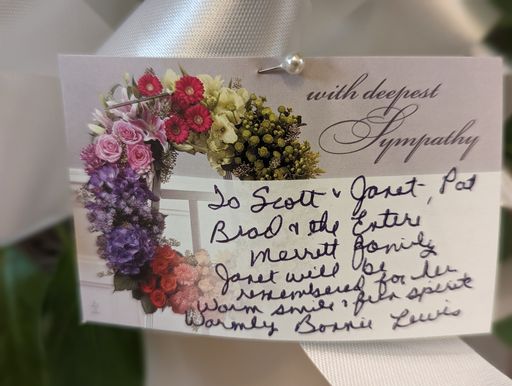 with deepest
Sympathy
To Scott & Janet, Pat
Brad & the Entire
Merrett Family
Janet will be
remembered for her
warm smile & fun spirit
Warmly Bonnie Lewis